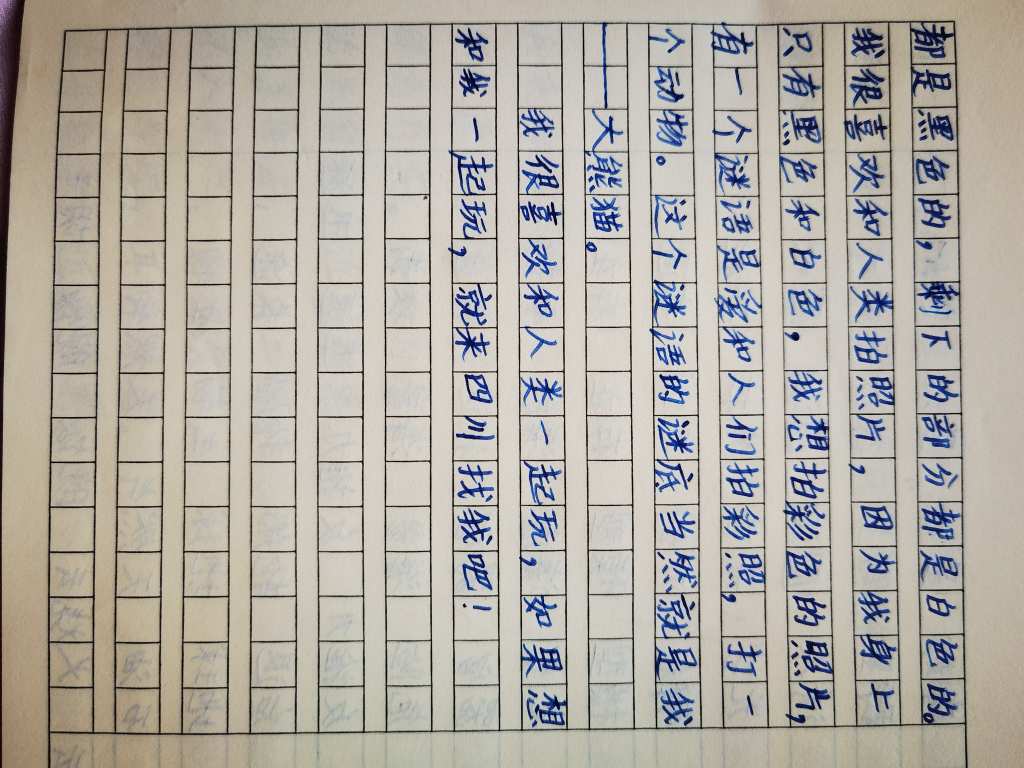 都是黑色的,剩下的部分都是白色的。
我很喜欢和人类拍照片,因为我身上
只有黑色和白色,我想拍彩色的照片,
有一个谜语是爱和人们拍彩照,打一
个动物。这个谜语的谜底当然就是我
——大熊猫。
我很喜欢和人类一起玩,如果想
和我一起玩,就来四川找我吧!